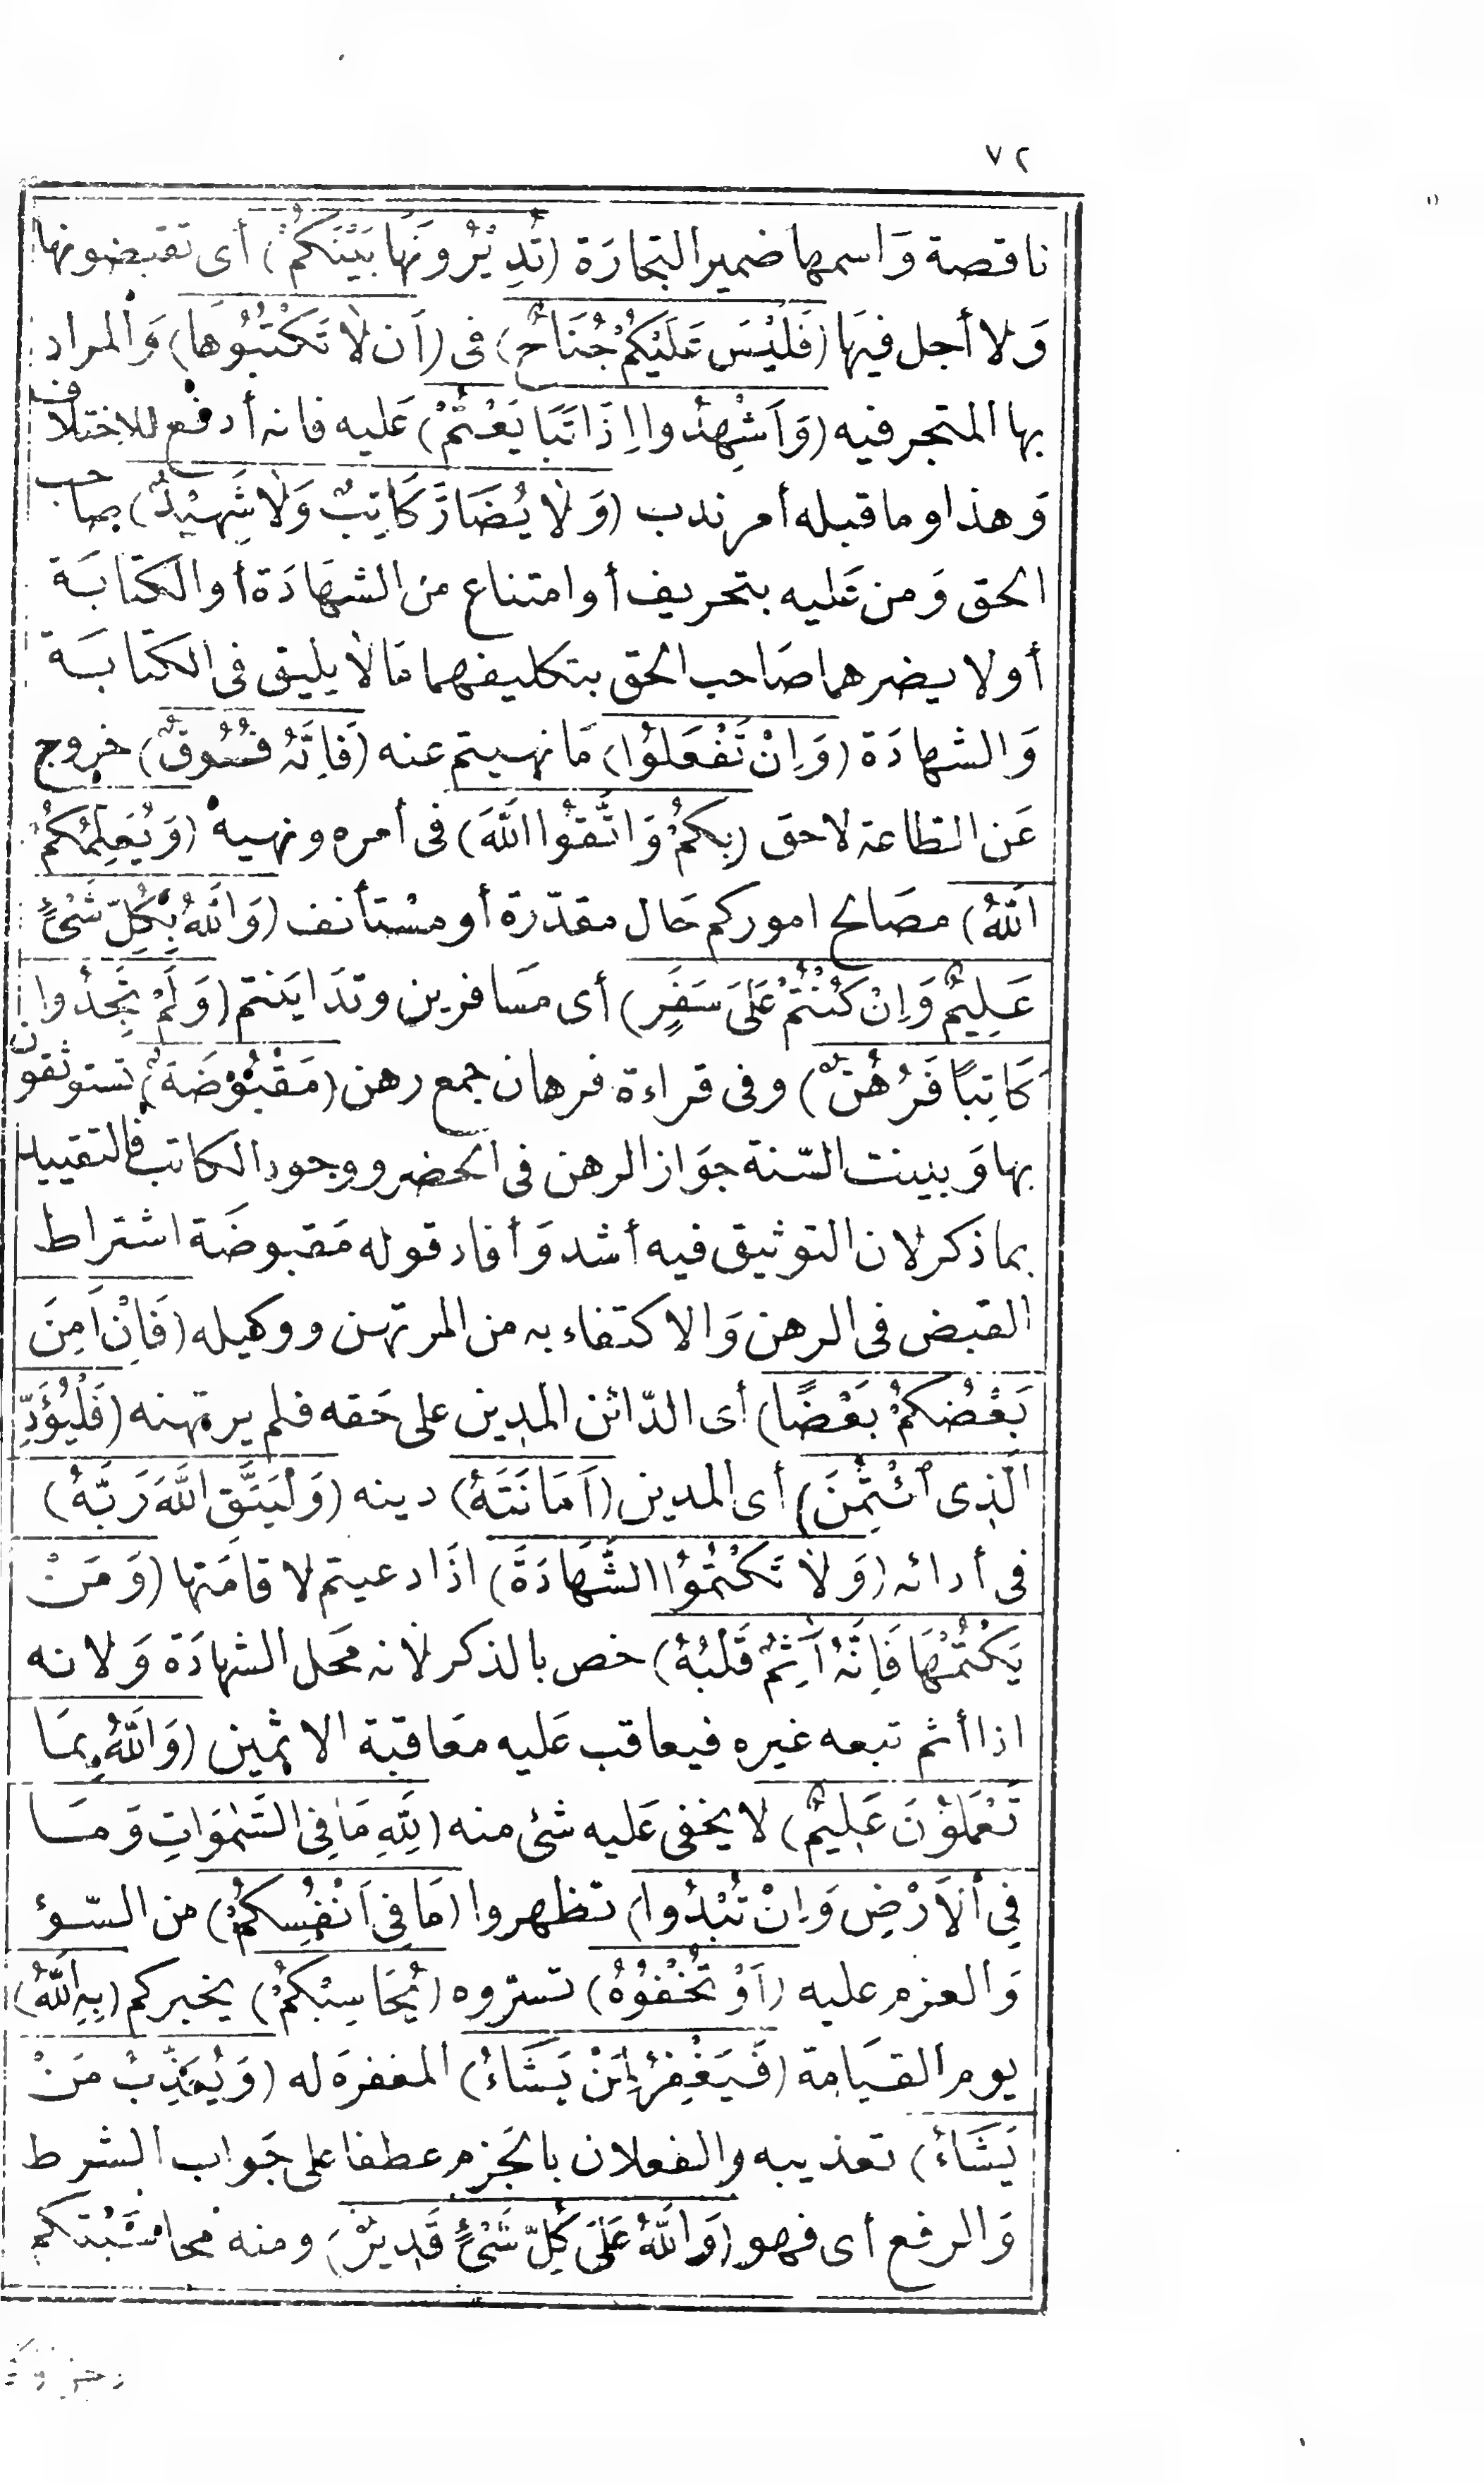 ٧٢
ناقصة وَاسمها ضمير التجارَة (تُدِيْرُونَهَا بَيْنَكُمْ) أى تقبضونها
وَلا أجل فيهَا (فَلَيْسَ عَلَيْكُمْ جُنَاحٌ) فى (اَن لاَ تَكْتُبُوْهَا) وَالمراد
بها المتجر فيه (وَاَشْهِدُوا اِذَا تَبَايَعْتُمْ) عَليه فانه أدفع للاختلاف
وَهذا وما قبله أمر ندب (وَلاَ يُضَارَّ كَاتِبٌ وَلاَ شَهِيْدٌ) صاحب
الحق وَمن عَليه بتحريف أو امتناع من الشهَادَة أو الكتابَة
أو لا يضرهما صَاحب الحق بتكليفهما مَا لاَ يليق فى الكتابَة
وَالشهادَة (وَاِنْ تَفْعَلُوْا) مَا نهيتم عنه (فَاِنَّهُ فُسُوقٌ) خروج
عَن الطاعة لاحق (بِكُمْ وَاتَّقُوا اللّٰهَ) فى أمره ونهيه (وَيُعَلِّمُكُمُ
اللّٰهُ) مصَالح اموركم حَال مقدّرة أو مسْتأنف (وَاللّٰهُ بِكُلِّ شَىْءٍ
عَلِيْمٌ وَاِنْ كُنْتُمْ عَلَىٰ سَفَرٍ) أى مسَافرين وتدَاينتم (وَلَمْ تَجِدُوا
كَاتِبًا فَرُهُنٌ) وفى قراءة فرهان جمع رهن (مَقْبُوْضَةٌ) تستوثقون
بها وَبينت السّنة جوَاز الرهن فى الحضر ووجود الكاتب فالتقييد
بما ذكر لان التوثيق فيه أشد وَأفاد قوله مَقبوضَة اشتراط
القبض فى الرهن وَالاكتفاء به من المرتهن ووكيله (فَاِنْ اَمِنَ
بَعْضُكُمْ بَعْضًا) أى الدّائن المدين على حَقه فلم يرتهنه (فَلْيُؤَدِّ
الَّذِى ائْتُمِنَ) أى المدين (اَمَانَتَهُ) دينه (وَلْيَتَّقِ اللّٰهَ رَبَّهُ)
فى أدائه (وَلاَ تَكْتُمُوْا الشَّهَادَةَ) اذَا دعيتم لاقامَتها (وَمَنْ
يَكْتُمْهَا فَاِنَّهُ اٰثِمٌ قَلْبُهُ) خص بالذكر لاَنه محَل الشهادَة وَلانه
اذا أثم تبعه غيره فيعاقب عَليه معَاقبة الاثمين (وَاللّٰهُ بِمَا
تَعْمَلُوْنَ عَلِيْمٌ) لا يخفى عَليه شئ منه (لِلّٰهِ مَا فِى السَّمٰوَاتِ وَمَا
فِى اْلاَرْضِ وَاِنْ تُبْدُوا) تظهروا (مَا فِى اَنْفُسِكُمْ) من السّوء
وَالعزم عليه (اَوْ تُخْفُوْهُ) تسترّوه (يُحَاسِبْكُمْ) يخبركم (بِهِ اللّٰهُ)
يوم القيَامة (فَيَغْفِرْ لِمَنْ يَشَاءُ) المغفرَة له (وَيُعَذِّبْ مَنْ
يَشَاءُ) تعذيبه والفعلان بالجَزم عطفا على جَواب الشرط
وَالرفع أى فهو (وَاللّٰهُ عَلَىٰ كُلِّ شَىْءٍ قَدِيْرٌ) ومنه محاسَبتكم